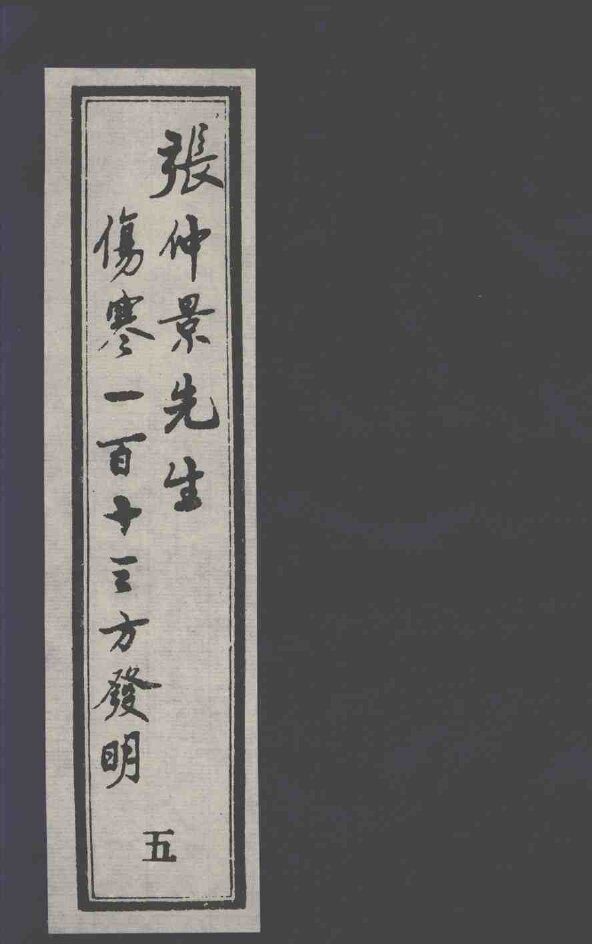 張仲景先生
傷寒一百十三方發明
五